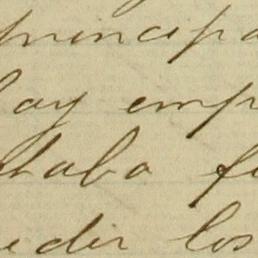 principa
hay emp
staba fu
edir los